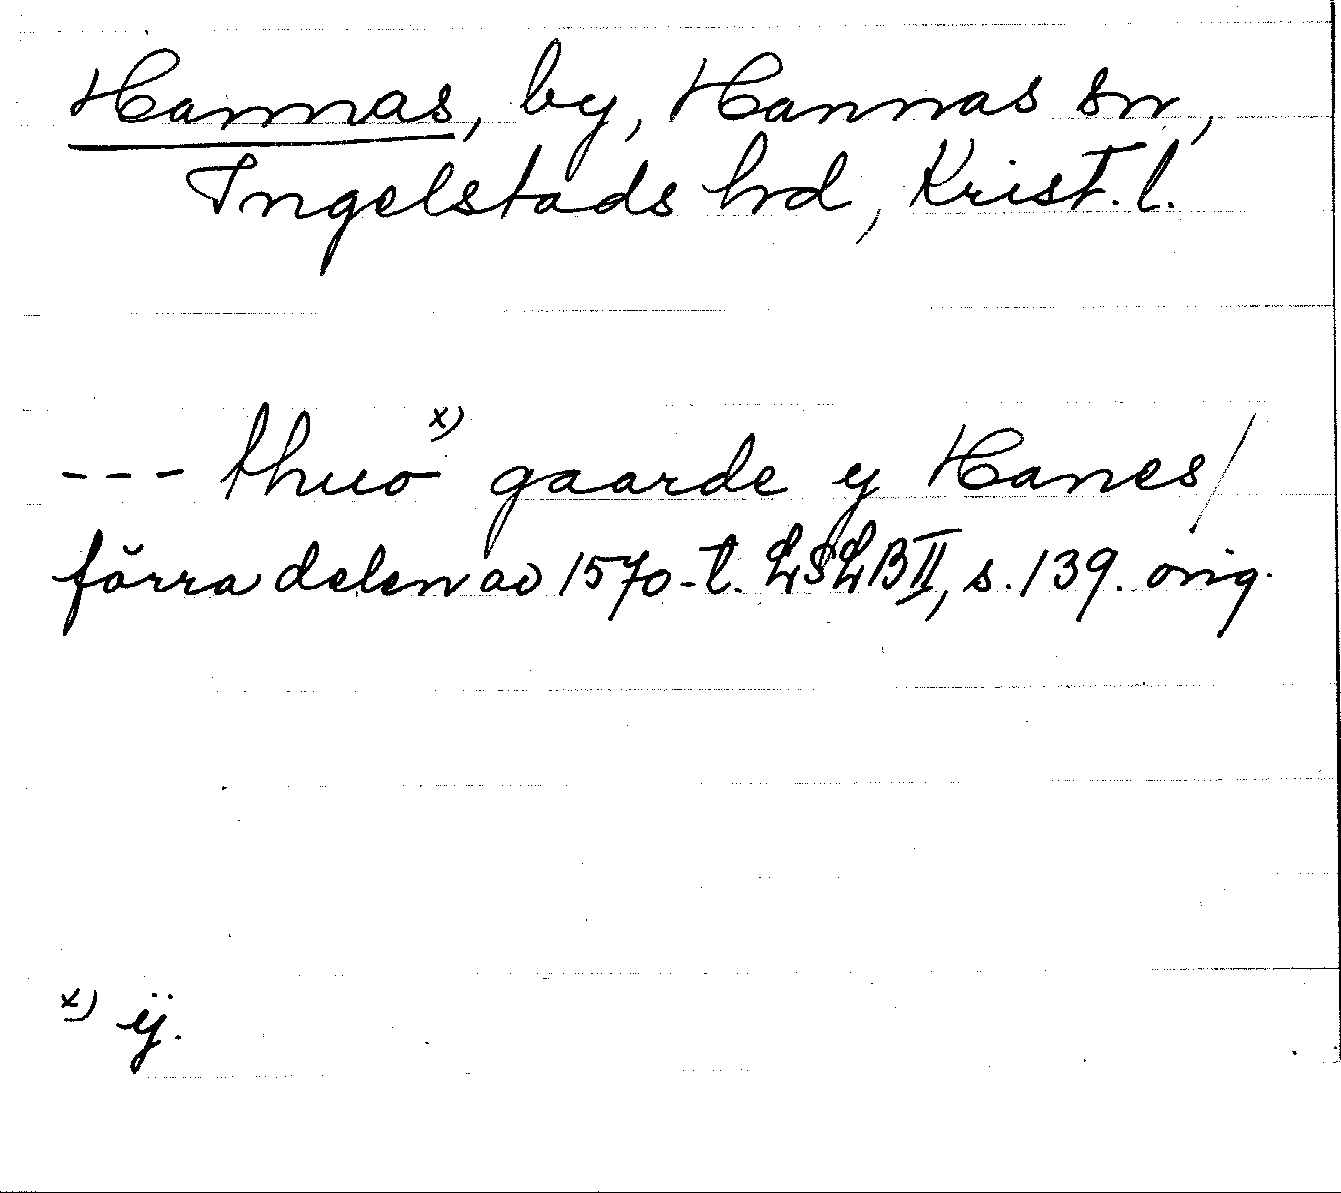 Hannas, by, Hannas sn,
Ingelstads hrd, Krist. l.
--- thuo x) gaarde y Hanes/
förra delen av 1570-t. LSLB II, s. 139. orig.
x) ÿ.